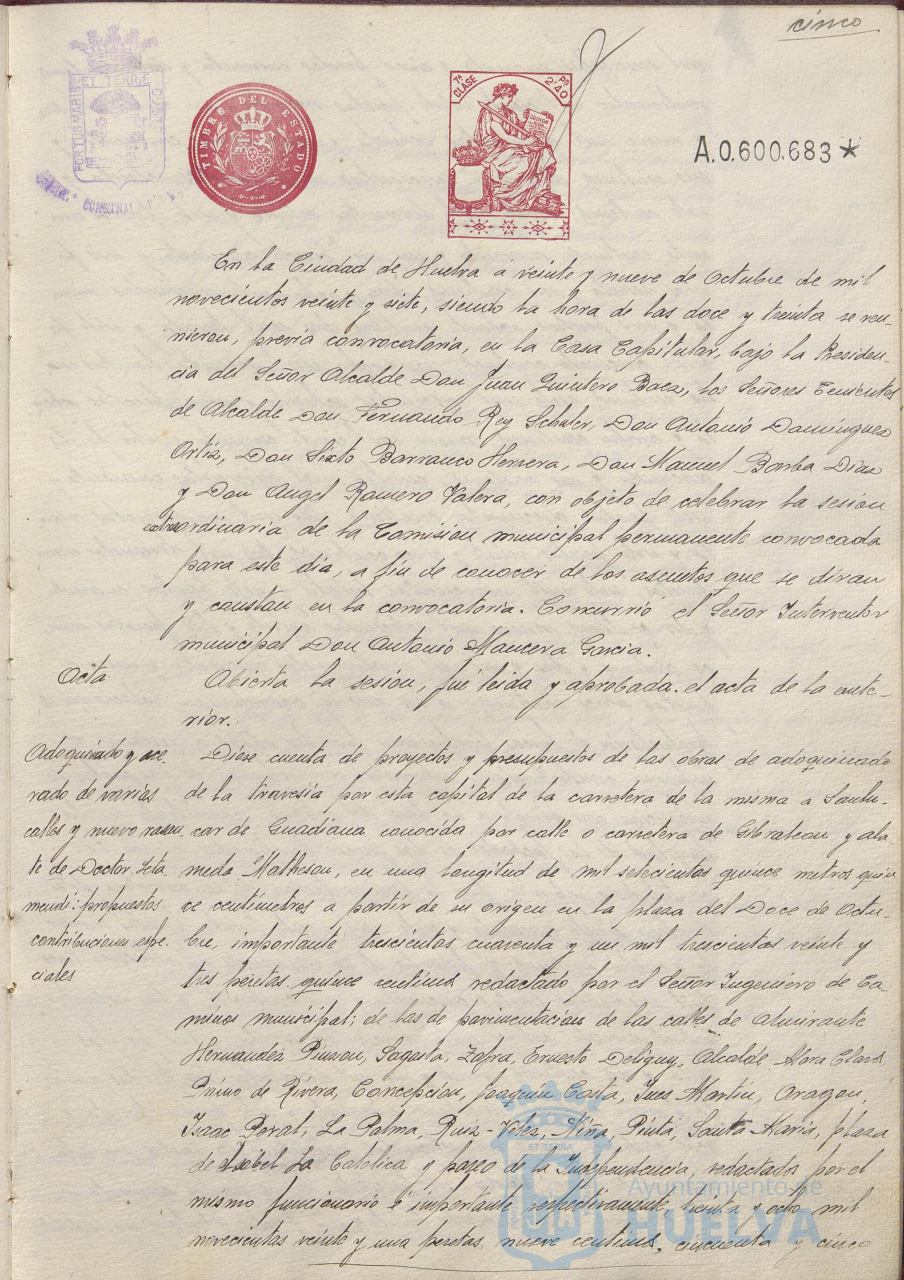 cinco
PORTUS MARIS ET TERRÆ CUST
TIMBRE DEL ESTADO
7ª CLASE
Pts 2'40
A.0.600.683★
En la Ciudad de Huelva á veinte y nueve de Octubre de mil
novecientos veinte y siete, siendo la hora de las doce y treinta se reu-
nieron, previa convocatoria, en la Casa Capitular, bajo la Presiden-
cia del Señor Alcalde Don Juan Quintero Baez, los Señores Tenientes
de Alcalde Don Fernando Rey Schuler, Don Antonio Domínguez
Ortiz, Don Sixto Barranco Herrera, Don Manuel Barba Diaz
y Don Angel Romero Valera, con objeto de celebrar la sesión
extraordinaria de la Comisión municipal permanente convocada
para este día, a fin de conocer de los asuntos que se diran
y constan en la convocatoria. Concurrió el Señor Interventor
municipal Don Antonio Mancera Garcia.
Acta
Abierta la sesión, fué leida y aprobada el acta de la ante-
rior.
Adoquinado y ace-
rado de varias
calles y nuevo rasan-
te de Doctor Leta-
mendi: propuestos
contribuciones espe-
ciales
Diose cuenta de proyectos y presupuestos de las obras de adoquinado
de la travesia por esta capital de la carretera de la misma a Sanlu-
car de Guadiana conocida por calle o carretera de Gibraleon y ala-
meda Matheson, en una longitud de mil setecientos quince metros quin-
ce centímetros a partir de su origen en la plaza del Doce de Octu-
bre, importante trescientas cuarenta y un mil trescientas veinte y
tres pesetas quince centimos redactado por el Señor Ingeniero de Ca-
minos municipal; de las de pavimentación de las calles de Almirante
Hernandez Pinzon, Sagasta, Zafra, Ernesto Deligny, Alcalde Mora Claros
Primo de Rivera, Concepcion, Joaquin Costa, Ines Martin, Aragon,
Isaac Peral, La Palma, Ruiz-Velez, Niña, Pinta, Santa Maria, plaza
de Isabel La Catolica y paseo de la Independencia, redactados por el
mismo funcionario é importante respectivamente, treinta y ocho mil
novecientas veinte y una pesetas nueve centimos, cincuenta y cinco
Ayuntamiento de
HUELVA